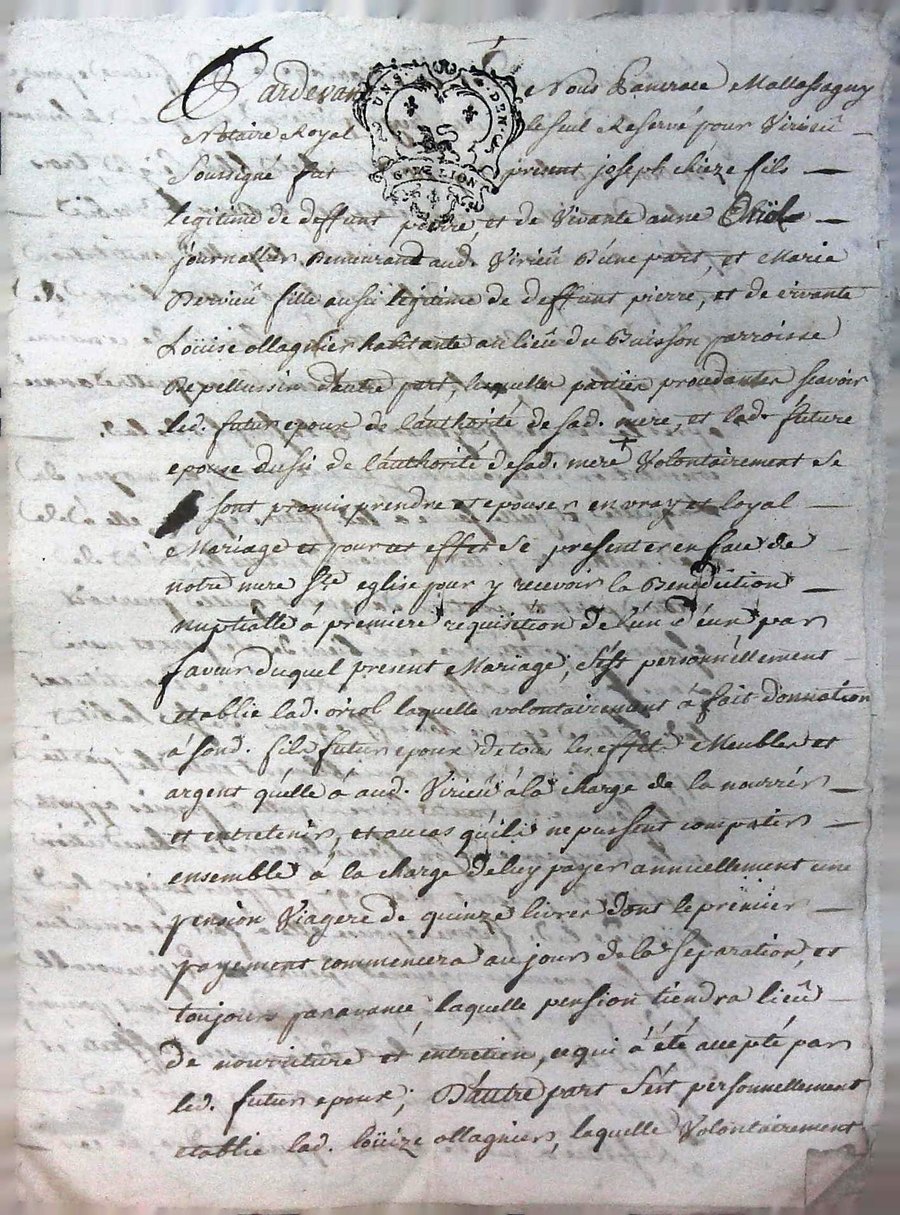 Pardevant Nous Pancrace Mallassagny
Notaire Royal le seul Reservé pour Virieû
DEUX S. DEN.
G. DE LION
Soussigné fut présent joseph chieze fils
legitime de deffunt pierre, et de vivante anne Oriol
journallier Demeurant aud. Virieû D'une part, et Marie
Dervieû fille aussi legitime de deffunt pierre, et de vivante
Loüise ollagnier habitante au lieû du Buisson parroisse
De pellussin d'autre part, laquelle parties procedantes scavoir
led. futur epoux de l'authorité de sad. mere, et lad. future
epouse aussi de l'authorité de sad. mere + Volontairement se
sont promis prendre et epouser en vray et loyal
Mariage et pour cet effet se presenter en face de
notre mere Ste eglise pour y recevoir la Benediction
nuptialle à premiere requisition de l'un d'eux par
faveur duquel present Mariage, s'est personnellement
etablie lad. oriol laquelle volontairement à fait donnation
à sond. fils futur epoux de tous les effets Meubles et
argent qu'elle à aud. Virieû à la charge de la nourrir
et entretenir, et au cas qu'ils ne pussent compatir
ensemble à la charge de luy payer annuellement une
pension Viagere de quinze livres dont le premier
payement commencera au jour de la separation, et
toujours par avance, laquelle pension tiendra lieû
de nourriture et entretien, ce qui à été accepté par
led. futur epoux; D'autre part s'est personnellement
etablie lad. loüize ollagnier, laquelle Volontairement